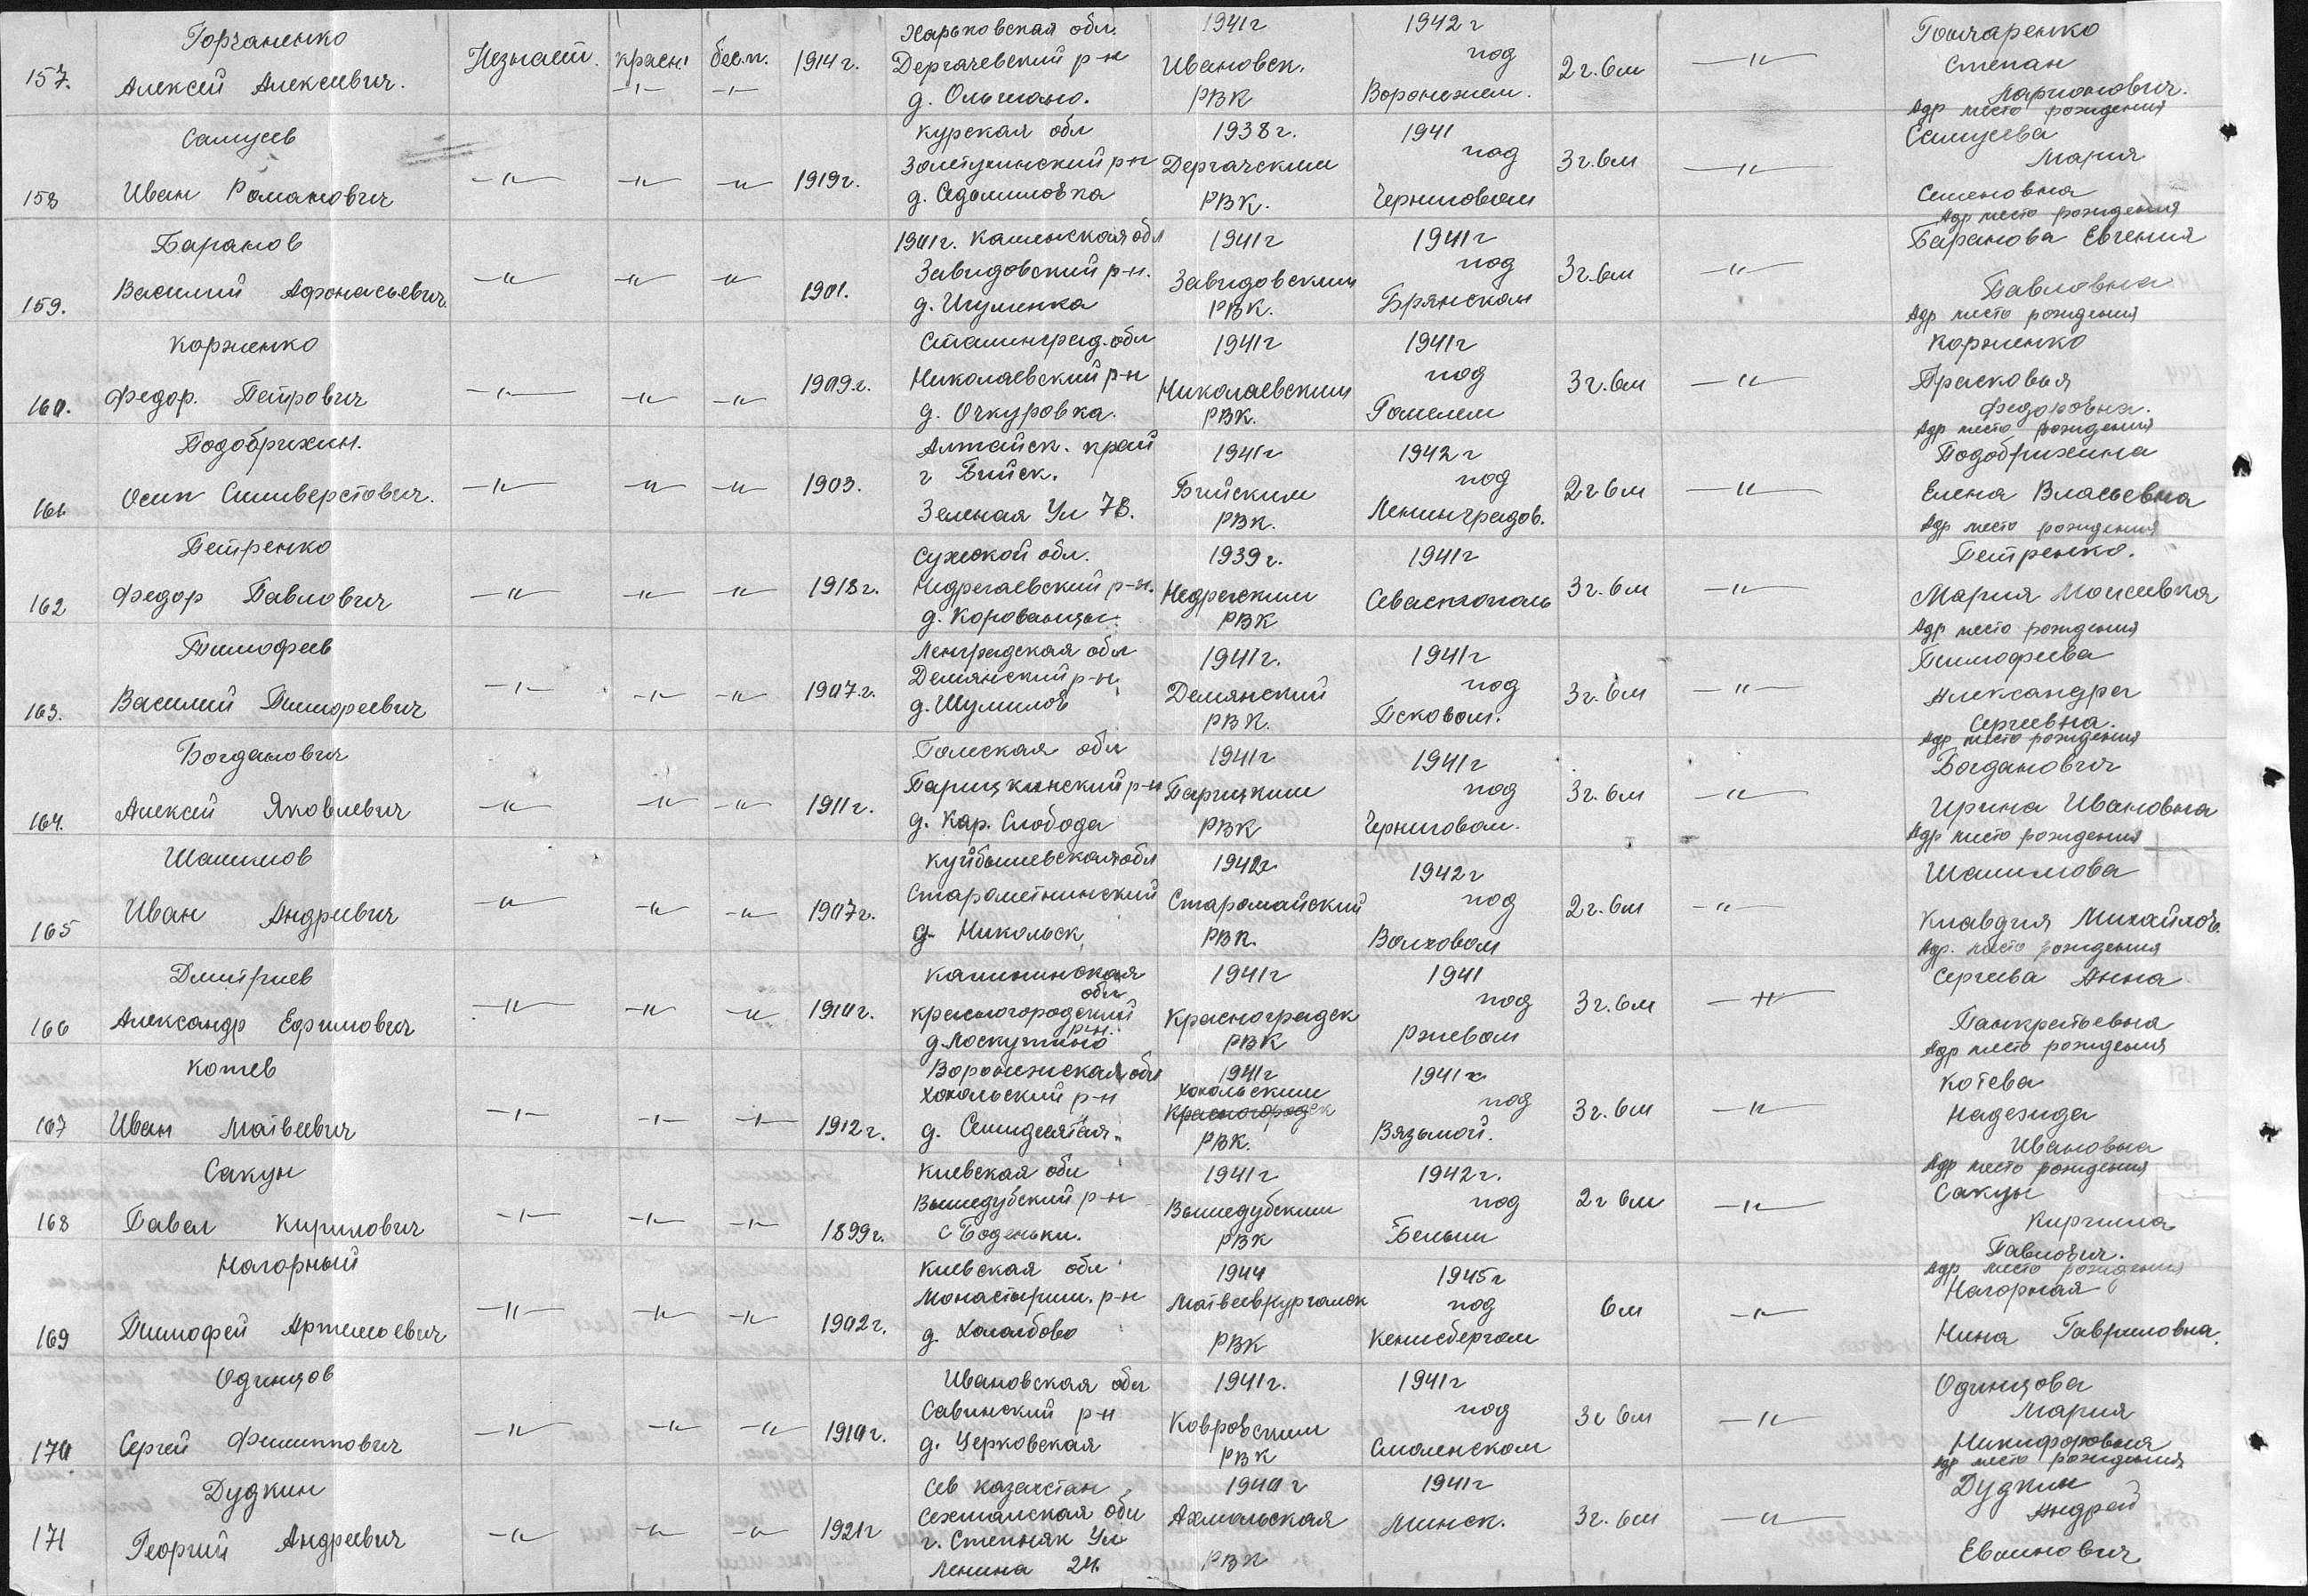 157. Горчаненко Алексей Алексеевич. Незнает. красн. бесп. 1914 г. Харьковская обл. Дергачевский р-н д. Ольшано. 1941 г Ивановск. РВК 1942 г под Воронежем. 2 г. 6 м —"— Гончаренко Степан Ларионович. Адр место рождения
158 Самусев Иван Романович —"— —"— —"— 1919 г. Курская обл Золотухинский р-н д. 1938 г. Дергачским РВК. 1941 под Черниговом 3 г. 6 м —"— Самусева Мария Семеновна Адр место рождения
159. Баранов Василий Афонасьевич. —"— —"— —"— 1901. 1901 г. Калинская обл Завидовский р-н. д. Игуменка 1941 г Завидовским РВК. 1941 г под Брянском 3 г. 6 м —"— Баранова Евгения Павловна Адр место рождения
160. Корженко Федор. Петрович —"— —"— —"— 1909 г. Сталинград. обл Николаевский р-н д. Очкуровка. 1941 г Николаевским РВК. 1941 г под Гомелем 3 г. 6 м —"— Корженко Прасковья Федоровна. Адр место рождения
161. Подобрихин. Осип Силиверстович. —"— —"— —"— 1903. Алтайск. край г Бийск. Зеленая Ул 78. 1941 г Бийским РВК. 1942 г под Ленинградов. 2 г 6 м —"— Подобрихина Елена Власьевна Адр место рождения
162 Петренко Федор Павлович —"— —"— —"— 1918 г. Сумской обл. Недрегаевский р-н. д. Корованцы. 1939 г. Недрегским РВК 1941 г Севастополь 3 г. 6 м —"— Петренко. Мария Моисеевка Адр место рождения
163. Тимофеев Василий Тимофеевич —"— —"— —"— 1907 г. Ленградская обл Демянский р-н. д. Шумилов 1941 г. Демянский РВК. 1941 г под Псковом. 3 г. 6 м —"— Тимофеева Александра Сергеевна. Адр место рождения
164. Богданович Алексей Яковлевич —"— —"— —"— 1911 г. Гомская обл Парицкинский р-н д. Кар. Слобода 1941 г Парицким РВК 1941 г под Черниговом. 3 г. 6 м —"— Богданович Ирина Ивановна Адр место рождения
165 Шашилов Иван Андреевич —"— —"— —"— 1907 г. Куйбышевская обл д. Никольск 1942 г Старомайский РВК. 1942 г под Волховом 2 г. 6 м —"— Шашилова Клавдия Михайлов. Адр. место рождения
166 Дмитриев Александр Ефимович —"— —"— —"— 1910 г. Калининская обл Красногородский р-н. д. Лоскутино 1941 г Красноградск РВК 1941 под Ржевом 3 г. 6 м —"— Сергеева Анна Панкратьевна Адр место рождения
167 Котев Иван Матвеевич —"— —"— —"— 1912 г. Воронежская обл Хохольский р-н д. Семидесятая. 1941 г Хохольским Красногородск РВК. 1941 г под Вязьмой. 3 г. 6 м —"— Котева Надежида Ивановна Адр место рождения
168 Сакун Павел Кирилович —"— —"— —"— 1899 г. Киевская обл Вышедубский р-н с Боденьки. 1941 г Вышедубским РВК 1942 г. под Белым 2 г 6 м —"— Сакун Кирилла Павлович. Адр место рождения
169 Нагорный Тимофей Артемоевич —"— —"— —"— 1902 г. Киевская обл Монастырищ. р-н д. 1944 Матвеевкурганск РВК 1945 г под Кенисбергом 6 м —"— Нагорная Нина Гавриловна.
170. Одинцов Сергей Филиппович —"— —"— —"— 1910 г. Ивановская обл Савинский р-н д. Церковская 1941 г. Ковровским РВК 1941 г под Смоленском 3 г 6 м —"— Одинцова Мария Никифоровна Адр место рождения.
171 Дудкин Георгий Андреевич —"— —"— —"— 1921 г Сев Казахстан обл г. Степняк Ул Ленина 24. 1940 г Акмольская РВК 1941 г Минск. 3 г. 6 м —"— Дудкин Андрей